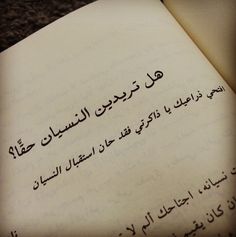 هل تريدين النسيان حقًّا؟
افتحي ذراعيك يا ذاكرتي فقد حان استقبال النسيان
ت نسيانه، اجتاحك ألم لا
ان كان يقيم